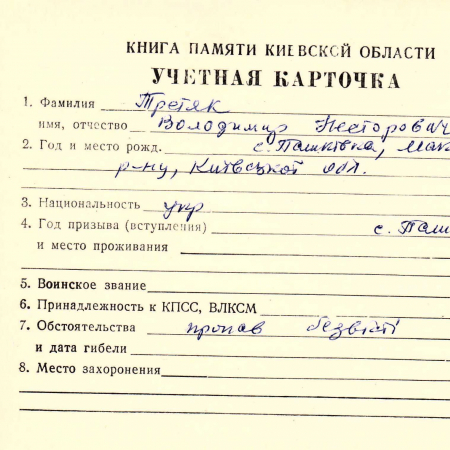 КНИГА ПАМЯТИ КИЕВСКОЙ ОБЛАСТИ
УЧЕТНАЯ КАРТОЧКА
1. Фамилия Третяк
имя, отчество Володимир Несторович
2. Год и место рожд. с. Пашківка, Мак
р-ну, Київської обл.
3. Национальность укр
4. Год призыва (вступления) с. Паш
и место проживания
5. Воинское звание
6. Принадлежность к КПСС, ВЛКСМ
7. Обстоятельства пропав безвісті
и дата гибели
8. Место захоронения